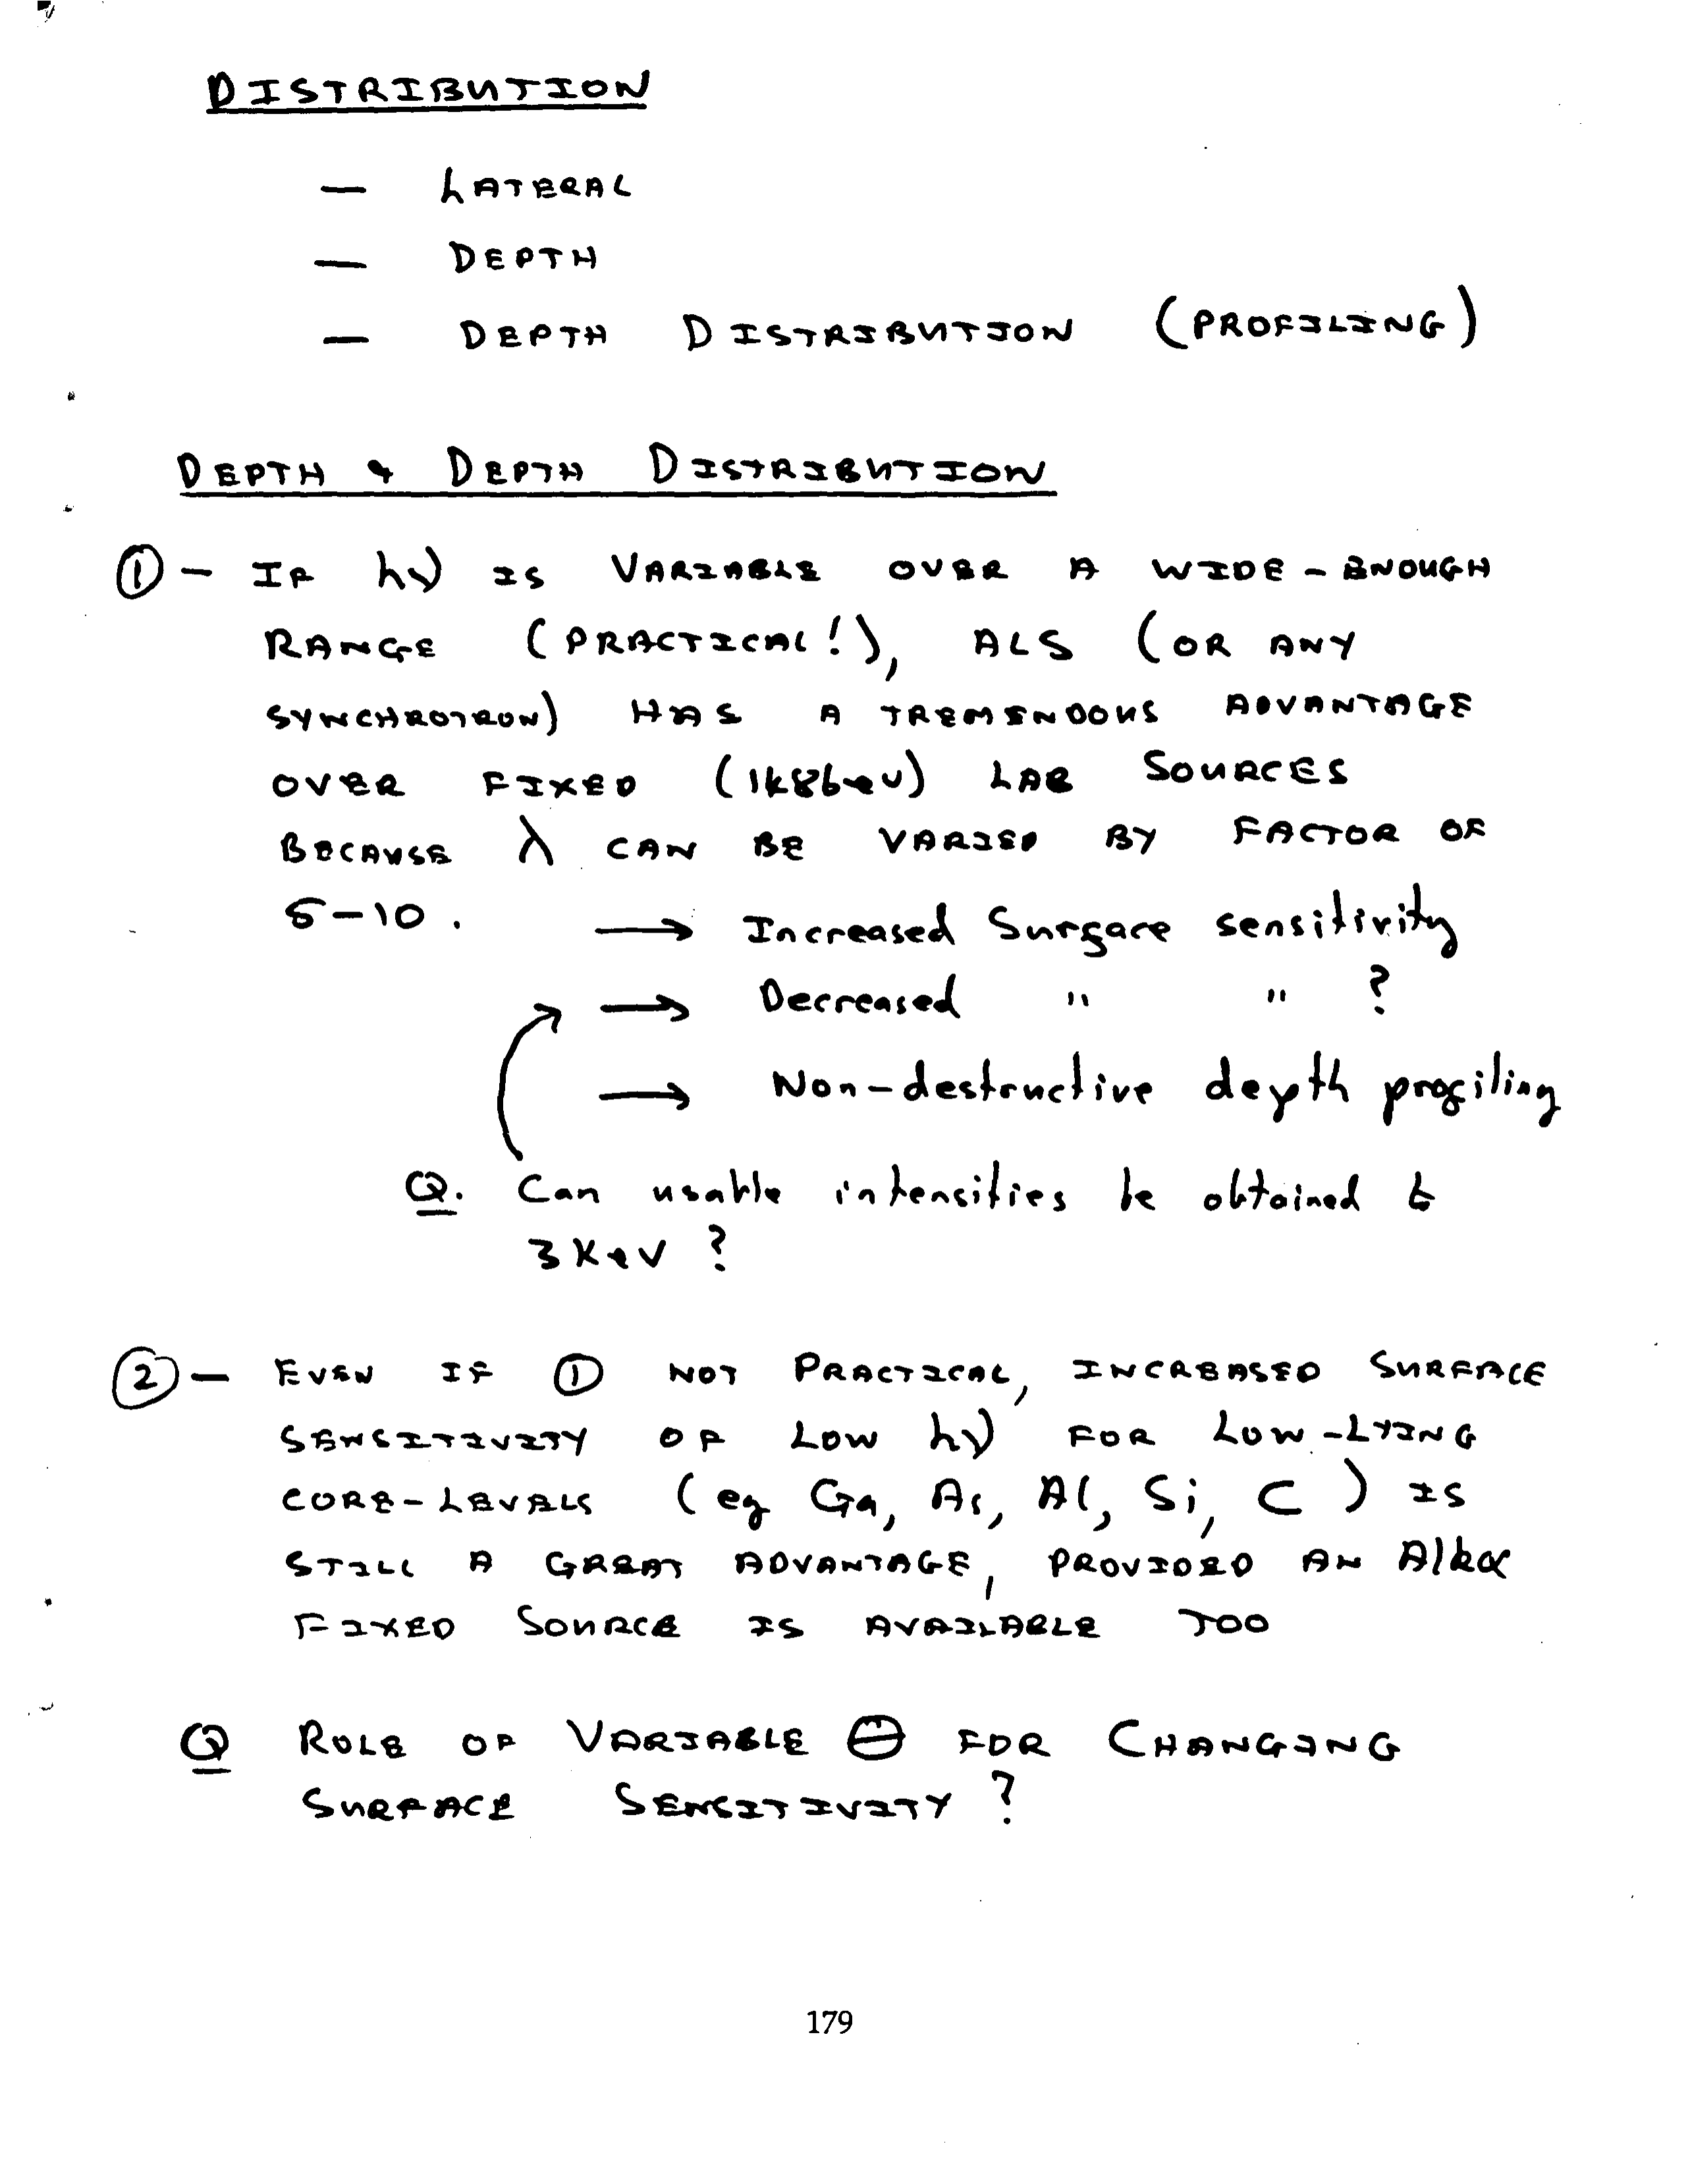 DISTRIBUTION
— LATERAL
— DEPTH
— DEPTH DISTRIBUTION (PROFILING)
DEPTH & DEPTH DISTRIBUTION
① - IF hν IS VARIABLE OVER A WIDE-ENOUGH
RANGE (PRACTICAL!), ALS (OR ANY
SYNCHROTRON) HAS A TREMENDOUS ADVANTAGE
OVER FIXED (1486eV) LAB SOURCES
BECAUSE λ CAN BE VARIED BY FACTOR OF
5-10. → Increased Surface sensitivity
→ Decreased " " ?
→ Non-destructive depth profiling
Q. Can usable intensities be obtained to
3KeV ?
② - EVEN IF ① NOT PRACTICAL, INCREASED SURFACE
SENSITIVITY OF LOW hν FOR LOW-LYING
CORE-LEVELS (eg Ga, As, Al, Si, C ) IS
STILL A GREAT ADVANTAGE, PROVIDED AN Alkα
FIXED SOURCE IS AVAILABLE TOO
Q ROLE OF VARIABLE Θ FOR CHANGING
SURFACE SENSITIVITY ?
179